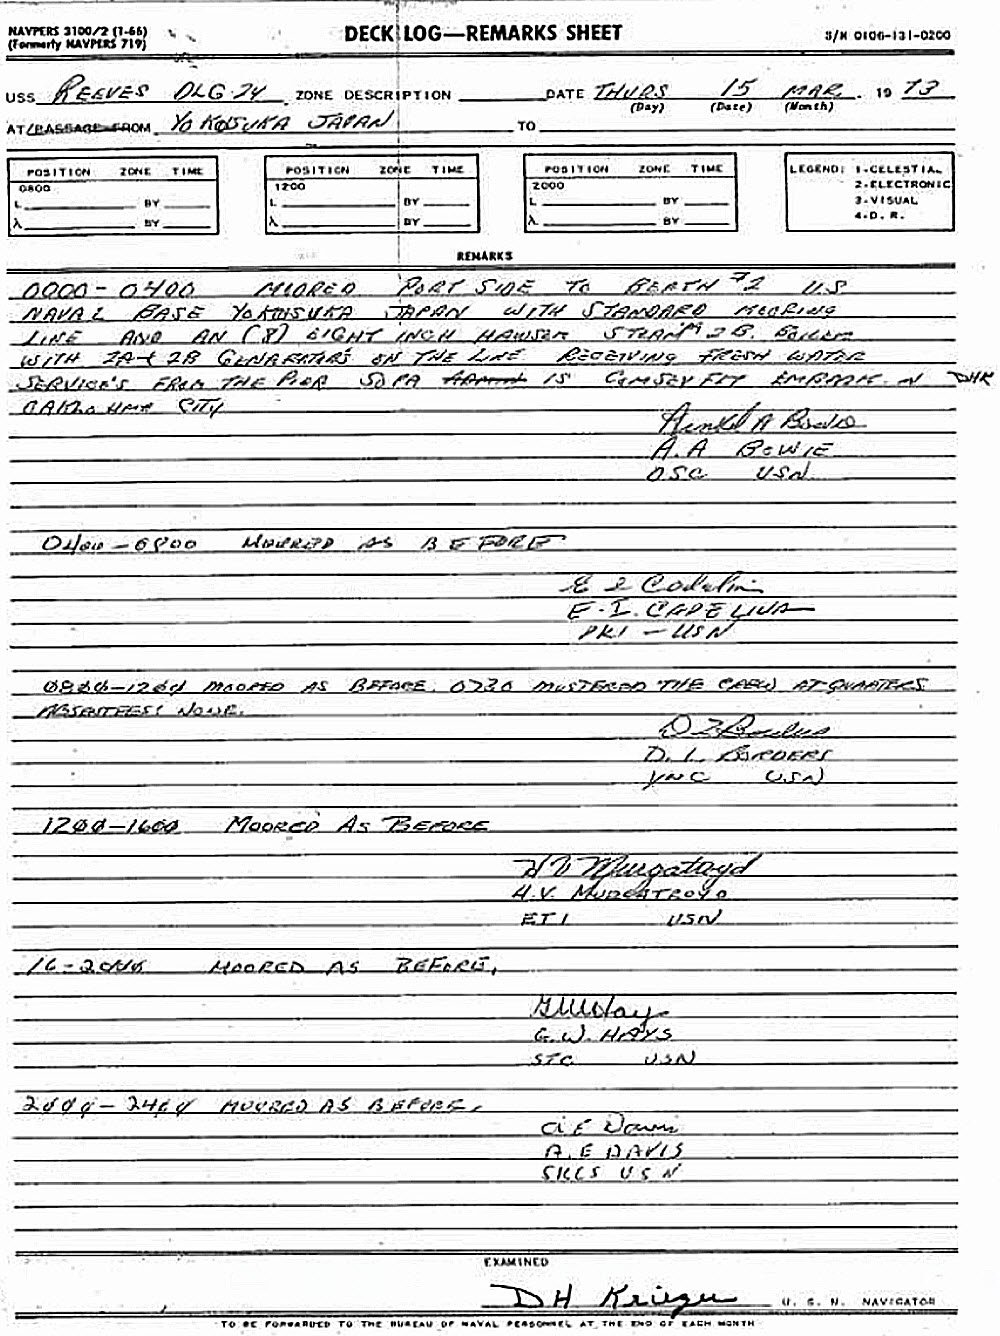 NAVPERS 3100/2 (1-66)
(Formerly NAVPERS 719)
DECK LOG—REMARKS SHEET
S/N 0106-131-0200
USS REEVES DLG-24 ZONE DESCRIPTION DATE THURS 15 MAR. 19 73
(Day) (Date) (Month)
AT/PASSAGE FROM YOKOSUKA JAPAN TO
POSITION ZONE TIME
0800
L BY
λ BY
POSITION ZONE TIME
1200
L BY
λ BY
POSITION ZONE TIME
2000
L BY
λ BY
LEGEND: 1-CELESTIAL
2-ELECTRONIC
3-VISUAL
4-D. R.
REMARKS
0000-0400 MOORED PORT SIDE TO BERTH #2 U.S.
NAVAL BASE YOKOSUKA JAPAN WITH STANDARD MOORING
LINE AND AN (8) EIGHT INCH HAWSER STEAM 2B. BOILER
WITH 2A & 2B GENARATORS ON THE LINE RECEIVING FRESH WATER
SERVICE'S FROM THE PIER SOPA IS COMSEVFLT EMBARK N DHK
OAKLAHMA CITY
A. A BOWIE
OSC USN
0400-0800 MOORED AS BEFORE
E. I. CAPELINA
PK1 - USN
0800-1200 MOORED AS BEFORE. 0730 MUSTERED THE CREW AT QUARTERS
ABSENTEES: NONE.
D. L. BORDERS
YNC USN
1200-1600 MOORED AS BEFORE
H V Murgatroyd
H. V. MURGATROYD
ET1 USN
16-2000 MOORED AS BEFORE.
G. W. HAYS
STC USN
2000-2400 MOORED AS BEFORE.
A E Davis
A. E DAVIS
SKCS USN
EXAMINED
DH Krieger U. S. N. NAVIGATOR
TO BE FORWARDED TO THE BUREAU OF NAVAL PERSONNEL AT THE END OF EACH MONTH